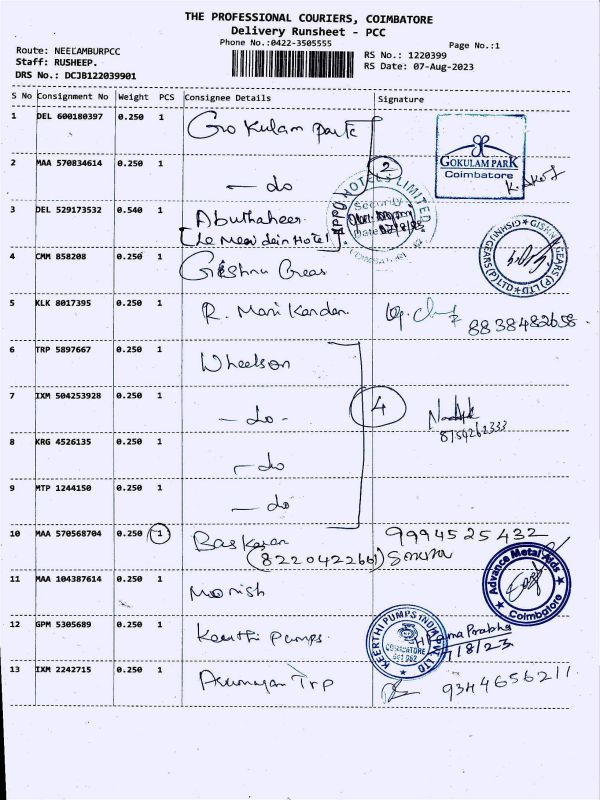 THE PROFESSIONAL COURIERS, COIMBATORE
Delivery Runsheet - PCC
Phone No.:0422-3505555
Page No.:1
Route: NEELAMBURPCC
Staff: RUSHEEP.
DRS No.: DCJB122039901
RS No.: 1220399
RS Date: 07-Aug-2023
S No Consignment No Weight PCS Consignee Details Signature
1 DEL 600180397 0.250 1 Gokulam Park
GOKULAM PARK
Coimbatore
2 MAA 570834614 0.250 1 - do
2
3 DEL 529173532 0.540 1 Abuthaheer
(Le Meridein Hotel)
HOTELS LIMITED
Security
Date
4 CMM 858208 0.250 1 Grishna Gears
GEARS (P) LTD
5 KLK 8017395 0.250 1 R. Manikandan
8838482658
6 TRP 5897667 0.250 1 Wheelson
7 IXM 504253928 0.250 1 - do -
4
8754262333
8 KRG 4526135 0.250 1 - do
9 MTP 1244150 0.250 1 - do
10 MAA 570568704 0.250 1 Baskaran 9994525432
(8220422661)
11 MAA 104387614 0.250 1
Advance Metal Aids
Coimbatore
12 GPM 5305689 0.250 1 Keerthi Pumps
KEERTHI PUMPS INDIA (P) LTD
COIMBATORE
641 062
Prabha
7/8/23
13 IXM 2242715 0.250 1 Arumugam TRP 9344656211